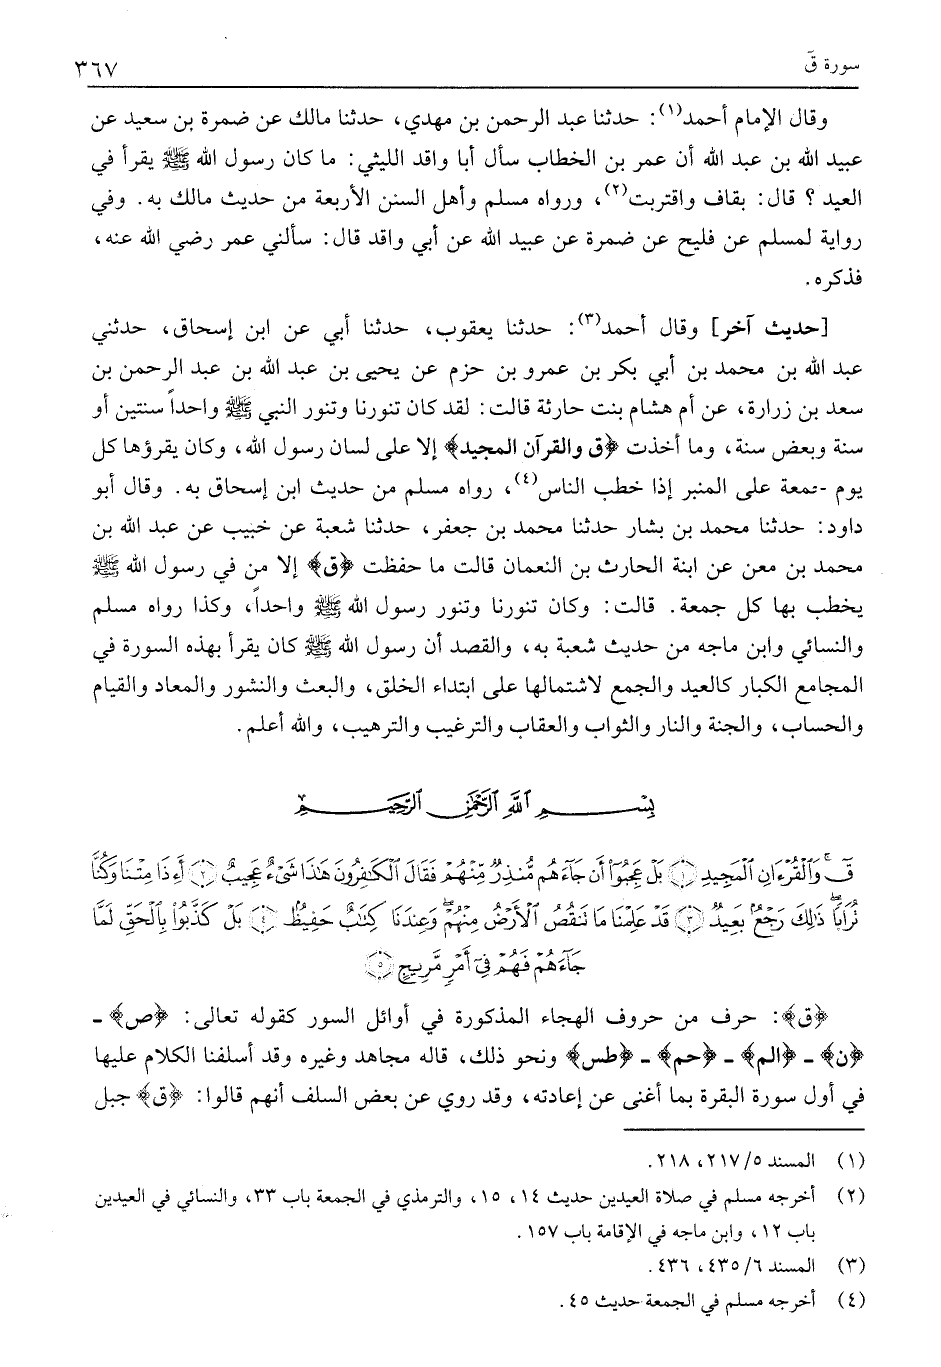 سورة قۤ
٣٦٧
وقال الإمام أحمد(١): حدثنا عبد الرحمن بن مهدي، حدثنا مالك عن ضمرة بن سعيد عن
عبيد الله بن عبد الله أن عمر بن الخطاب سأل أبا واقد الليثي: ما كان رسول الله ﷺ يقرأ في
العيد ؟ قال: بقاف واقتربت(٢)، ورواه مسلم وأهل السنن الأربعة من حديث مالك به. وفي
رواية لمسلم عن فليح عن ضمرة عن عبيد الله عن أبي واقد قال: سألني عمر رضي الله عنه،
فذكره.
[حديث آخر] وقال أحمد(٣): حدثنا يعقوب، حدثنا أبي عن ابن إسحاق، حدثني
عبد الله بن محمد بن أبي بكر بن عمرو بن حزم عن يحيى بن عبد الله بن عبد الرحمن بن
سعد بن زرارة، عن أم هشام بنت حارثة قالت: لقد كان تنورنا وتنور النبي ﷺ واحداً سنتين أو
سنة وبعض سنة، وما أخذت ﴿ق والقرآن المجيد﴾ إلا على لسان رسول الله، وكان يقرؤها كل
يوم -تمعة على المنبر إذا خطب الناس(٤)، رواه مسلم من حديث ابن إسحاق به. وقال أبو
داود: حدثنا محمد بن بشار حدثنا محمد بن جعفر، حدثنا شعبة عن خبيب عن عبد الله بن
محمد بن معن عن ابنة الحارث بن النعمان قالت ما حفظت ﴿ق﴾ إلا من في رسول الله ﷺ
يخطب بها كل جمعة. قالت: وكان تنورنا وتنور رسول الله ﷺ واحداً، وكذا رواه مسلم
والنسائي وابن ماجه من حديث شعبة به، والقصد أن رسول الله ﷺ كان يقرأ بهذه السورة في
المجامع الكبار كالعيد والجمع لاشتمالها على ابتداء الخلق، والبعث والنشور والمعاد والقيام
والحساب، والجنة والنار والثواب والعقاب والترغيب والترهيب، والله أعلم.
بِسْمِ اللَّهِ الرَّحْمَٰنِ الرَّحِيمِ
قٓ ۚ وَالْقُرْءَانِ الْمَجِيدِ (١) بَلْ عَجِبُوٓا أَن جَآءَهُم مُّنذِرٌ مِّنْهُمْ فَقَالَ الْكَٰفِرُونَ هَٰذَا شَىْءٌ عَجِيبٌ (٢) أَءِذَا مِتْنَا وَكُنَّا
تُرَابًا ۖ ذَٰلِكَ رَجْعٌ بَعِيدٌ (٣) قَدْ عَلِمْنَا مَا تَنقُصُ الْأَرْضُ مِنْهُمْ ۖ وَعِندَنَا كِتَٰبٌ حَفِيظٌۢ (٤) بَلْ كَذَّبُوا بِالْحَقِّ لَمَّا
جَآءَهُمْ فَهُمْ فِىٓ أَمْرٍ مَّرِيجٍ (٥)
﴿ق﴾: حرف من حروف الهجاء المذكورة في أوائل السور كقوله تعالى: ﴿ص﴾ ـ
﴿ن﴾ ـ ﴿الم﴾ ـ ﴿حم﴾ ـ ﴿طس﴾ ونحو ذلك، قاله مجاهد وغيره وقد أسلفنا الكلام عليها
في أول سورة البقرة بما أغنى عن إعادته، وقد روي عن بعض السلف أنهم قالوا: ﴿ق﴾ جبل
(١) المسند ٥/٢١٧، ٢١٨.
(٢) أخرجه مسلم في صلاة العيدين حديث ١٤، ١٥، والترمذي في الجمعة باب ٣٣، والنسائي في العيدين
باب ١٢، وابن ماجه في الإقامة باب ١٥٧.
(٣) المسند ٦/٤٣٥، ٤٣٦.
(٤) أخرجه مسلم في الجمعة حديث ٤٥.